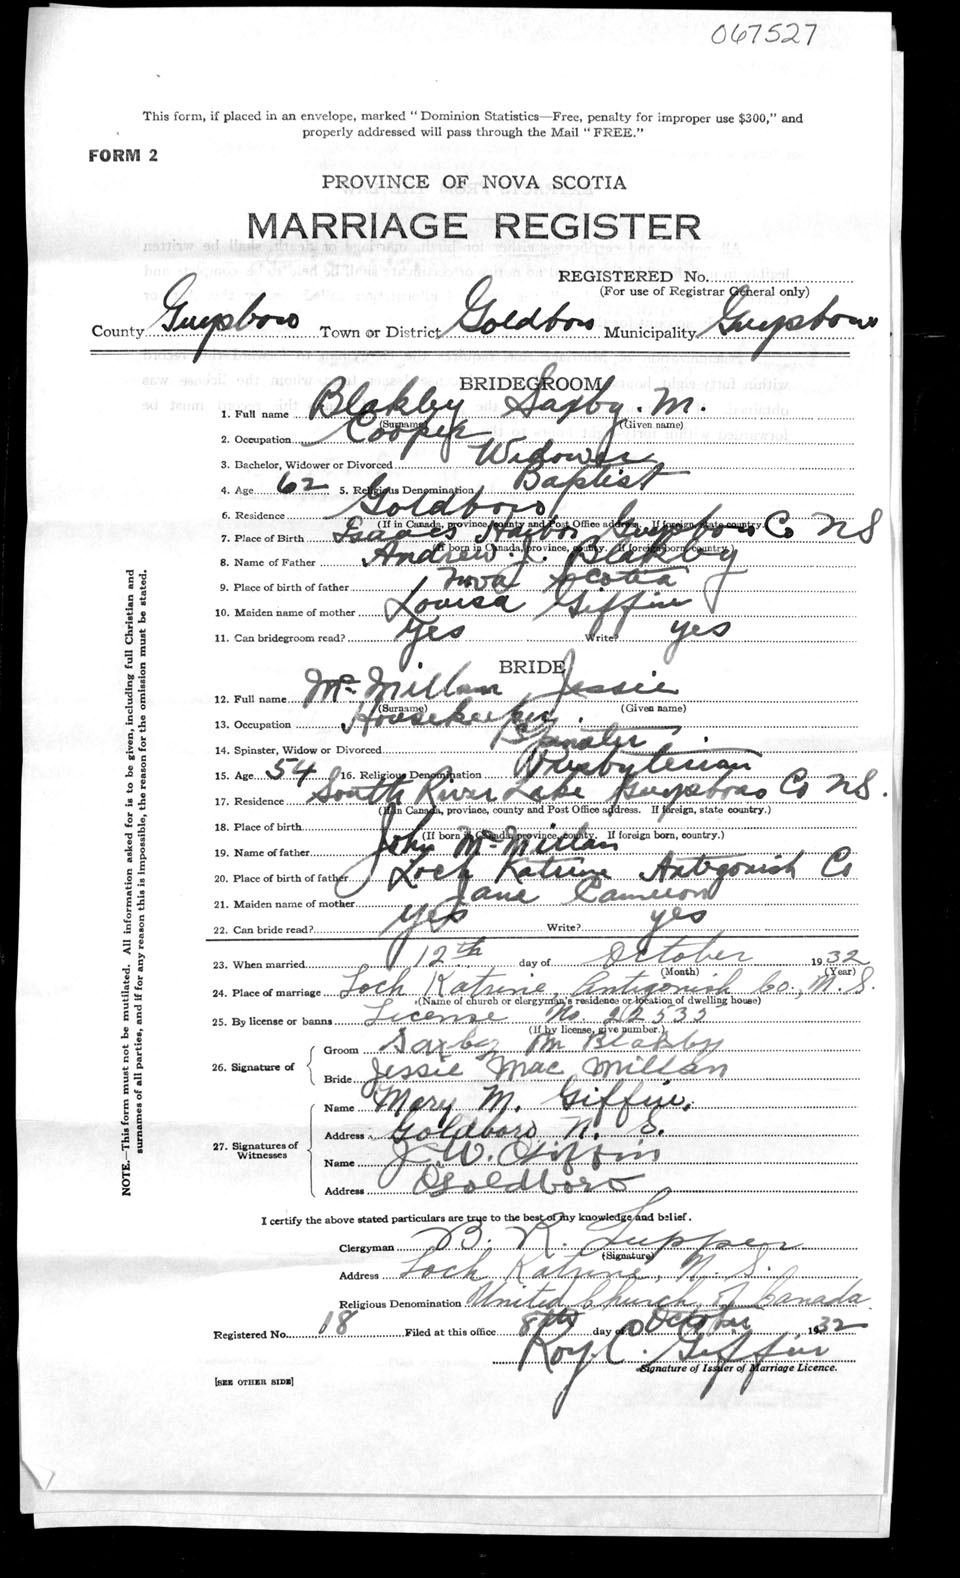 067527
This form, if placed in an envelope, marked "Dominion Statistics—Free, penalty for improper use $300," and
properly addressed will pass through the Mail "FREE."
FORM 2
PROVINCE OF NOVA SCOTIA
MARRIAGE REGISTER
REGISTERED No.
(For use of Registrar General only)
County Guysboro Town or District Goldboro Municipality Guysboro
BRIDEGROOM
1. Full name Blakley Saxby. M.
(Surname) (Given name)
2. Occupation Cooper
3. Bachelor, Widower or Divorced Widower
4. Age 62 5. Religious Denomination Baptist
6. Residence Goldboro
(If in Canada, province, county and Post Office address. If foreign, state country.)
7. Place of Birth Isaacs Harbor Guysboro Co NS
(If born in Canada, province, county. If foreign born, country.)
8. Name of Father Andrew J. Blakley
9. Place of birth of father Nova Scotia
10. Maiden name of mother Louisa Giffin
11. Can bridegroom read? Yes Write? yes
BRIDE
12. Full name McMillan Jessie
(Surname) (Given name)
13. Occupation Housekeeper.
14. Spinster, Widow or Divorced Spinster
15. Age 54 16. Religious Denomination Presbyterian
17. Residence South River Lake Guysboro Co NS.
(If in Canada, province, county and Post Office address. If foreign, state country.)
18. Place of birth
(If born in Canada, province, county. If foreign born, country.)
19. Name of father John McMillan
20. Place of birth of father Loch Katrine Antigonish Co
21. Maiden name of mother Jane Cameron
22. Can bride read? yes Write? yes
23. When married 12th day of October 1932
(Month) (Year)
24. Place of marriage Loch Katrine, Antigonish Co., N.S.
(Name of church or clergyman's residence or location of dwelling house)
25. By license or banns License No. 22535
(If by license, give number.)
26. Signature of
Groom Saxby M Blakby
Bride Jessie MacMillan
27. Signatures of Witnesses
Name Mary M. Giffin.
Address Goldboro N. S.
Name J. W. Giffin
Address Goldboro
I certify the above stated particulars are true to the best of my knowledge and belief.
Clergyman B. K. Tupper
(Signature)
Address Loch Katrine, N. S.
Religious Denomination United Church of Canada.
Registered No. 18 Filed at this office 8th day of October 1932
Roy C. Giffin
Signature of Issuer of Marriage Licence.
[SEE OTHER SIDE]
NOTE.—This form must not be mutilated. All information asked for is to be given, including full Christian and
surnames of all parties, and if for any reason this is impossible, the reason for the omission must be stated.